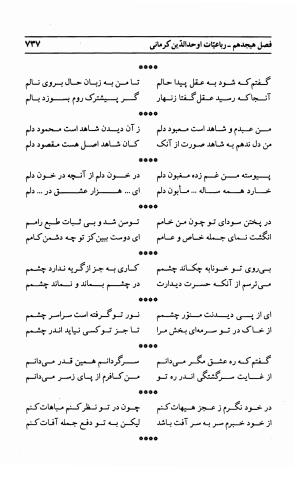 فصل هیجدهم ـ رباعیّات اوحدالدّین کرمانی ۷۳۷
****
گفتم که شود به عقل پیدا حالم تا من به زبان حال بروی نالم
آنجا که رسید عقل گفتا زنهار گر پیشترک روم بسوزد بالم
****
من عبدم و شاهد است معبود دلم ز آن دیدن شاهد است محمود دلم
من دل ندهم به شاهد صورت از آنک کان شاهد اصل هست مقصود دلم
****
پیوسته منم ز غم زده مغبون دلم در خون دلم از آنچه در خون دلم
خارد همه ساله ... مأبون دلم ای ... هزار عشق در ... دلم
****
در پختن سودای تو چون من خامم توسن شد و بی ثبات طبع رامم
انگشت نمای جمله خاص و عامم ای دوست ببین کز تو چه دشمن کامم
****
بی‌روی تو خونابه چکاند چشمم کاری به جز از گریه ندارد چشمم
می‌ترسم از آنکه حسرت دیدارت در چشم بماند و نماند چشمم
****
ای از پی دیدنت منوّر چشمم نور تو گرفته است سراسر چشمم
از خاک در تو سرمه‌ای بخش مرا تا جز تو کسی نیاید اندر چشمم
****
گفتم که ره عشق مگر می‌دانم سرگردانم همین قدر می‌دانم
از غایت سرگشتگی اندر ره تو من کافرم از پای ز سر می‌دانم
****
در خود نگرم ز عجز هیهات کنم چون در تو نظر کنم مباهات کنم
از خود خبرم سر به سر آفت باشد لیکن به تو دفع جمله آفات کنم
****